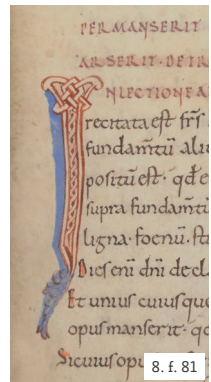 PERMANSERIT
ARSERIT · DETR
IN LECTIONE A
recitata est fr̄s
fundam̄tū aliu
positū est · qđ e
supra fundam̄tū
ligna · foenū · sti
Dies eni dn̄i decl
Et unius cuiusque
opus manserit · qd
Si cuius opu
8. f. 81